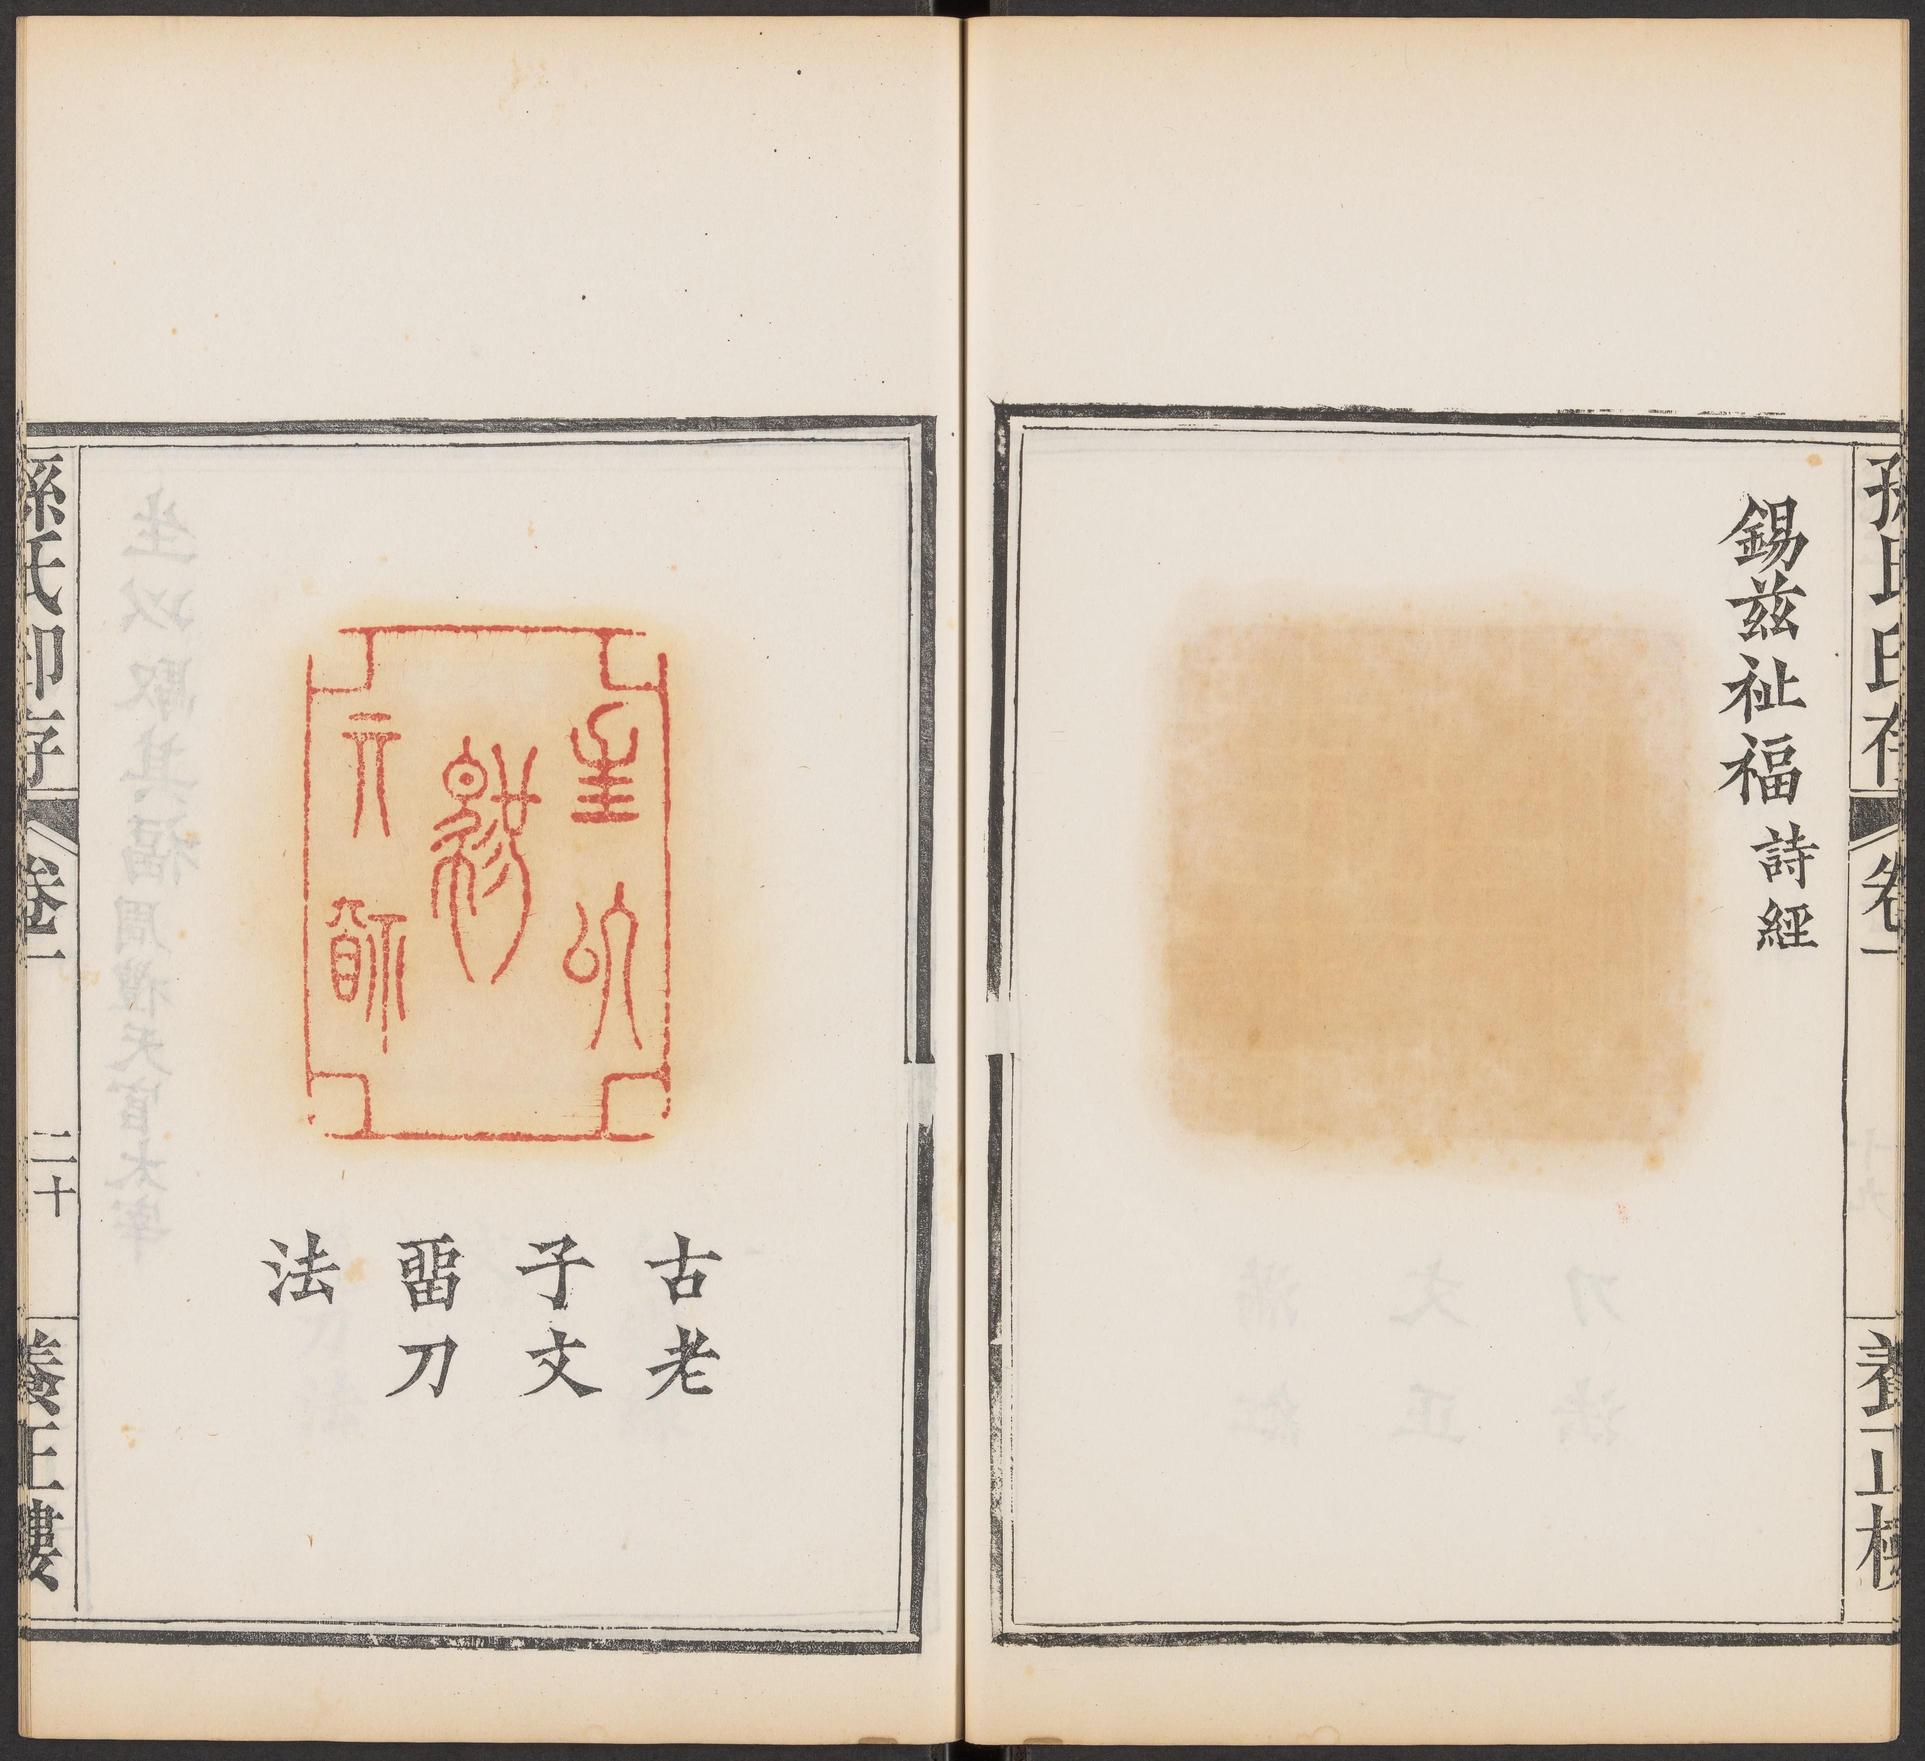 孫氏印存
卷一
養正樓
錫兹祉福 詩經
古老
子文
畱刀
法
孫氏印存
卷一
二十
養正樓